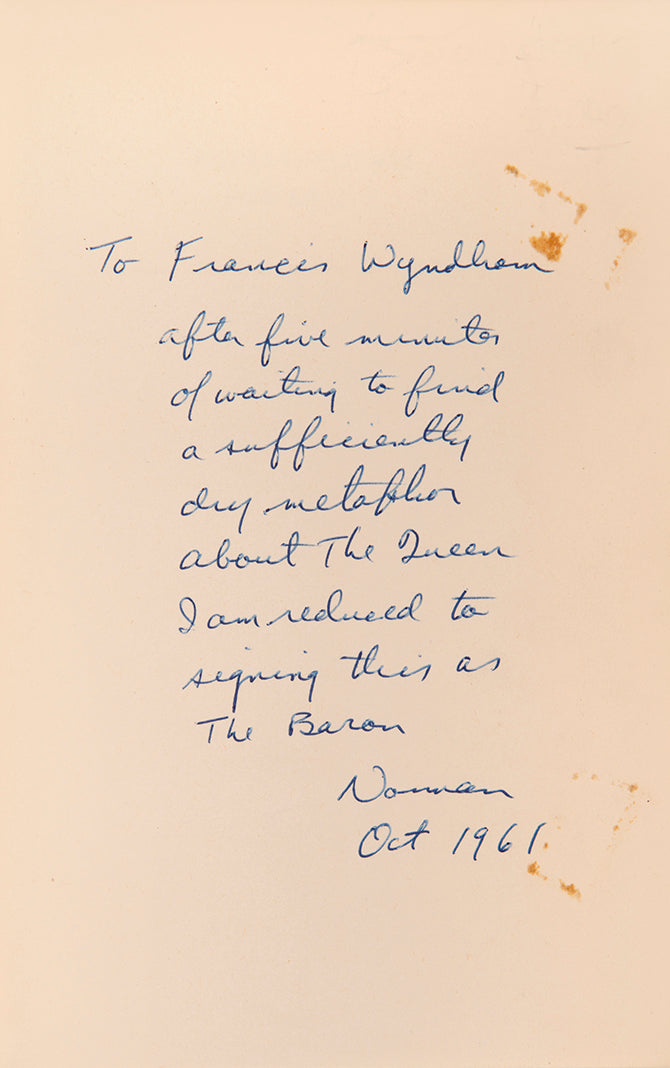 To Francis Wyndham
after five minutes
of waiting to find
a sufficiently
dry metaphor
about The Queen
I am reduced to
signing this as
The Baron
Norman
Oct 1961